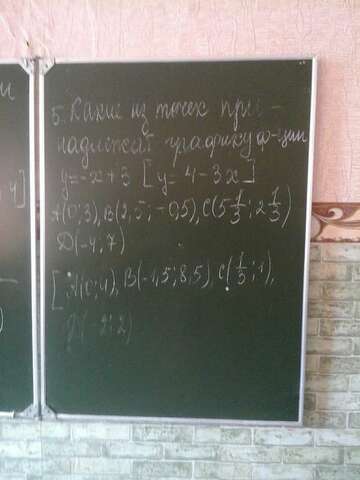 5. Какие из точек при-
надлежат графику ф-ции
y=-x+3 [y=4-3x]
A(0;3), B(2,5;-0,5), C(5 1/3; 2 1/3)
D(-4;7)
[A(0;4), B(-1,5;8,5), C(1/3;1),
D(-2;2)